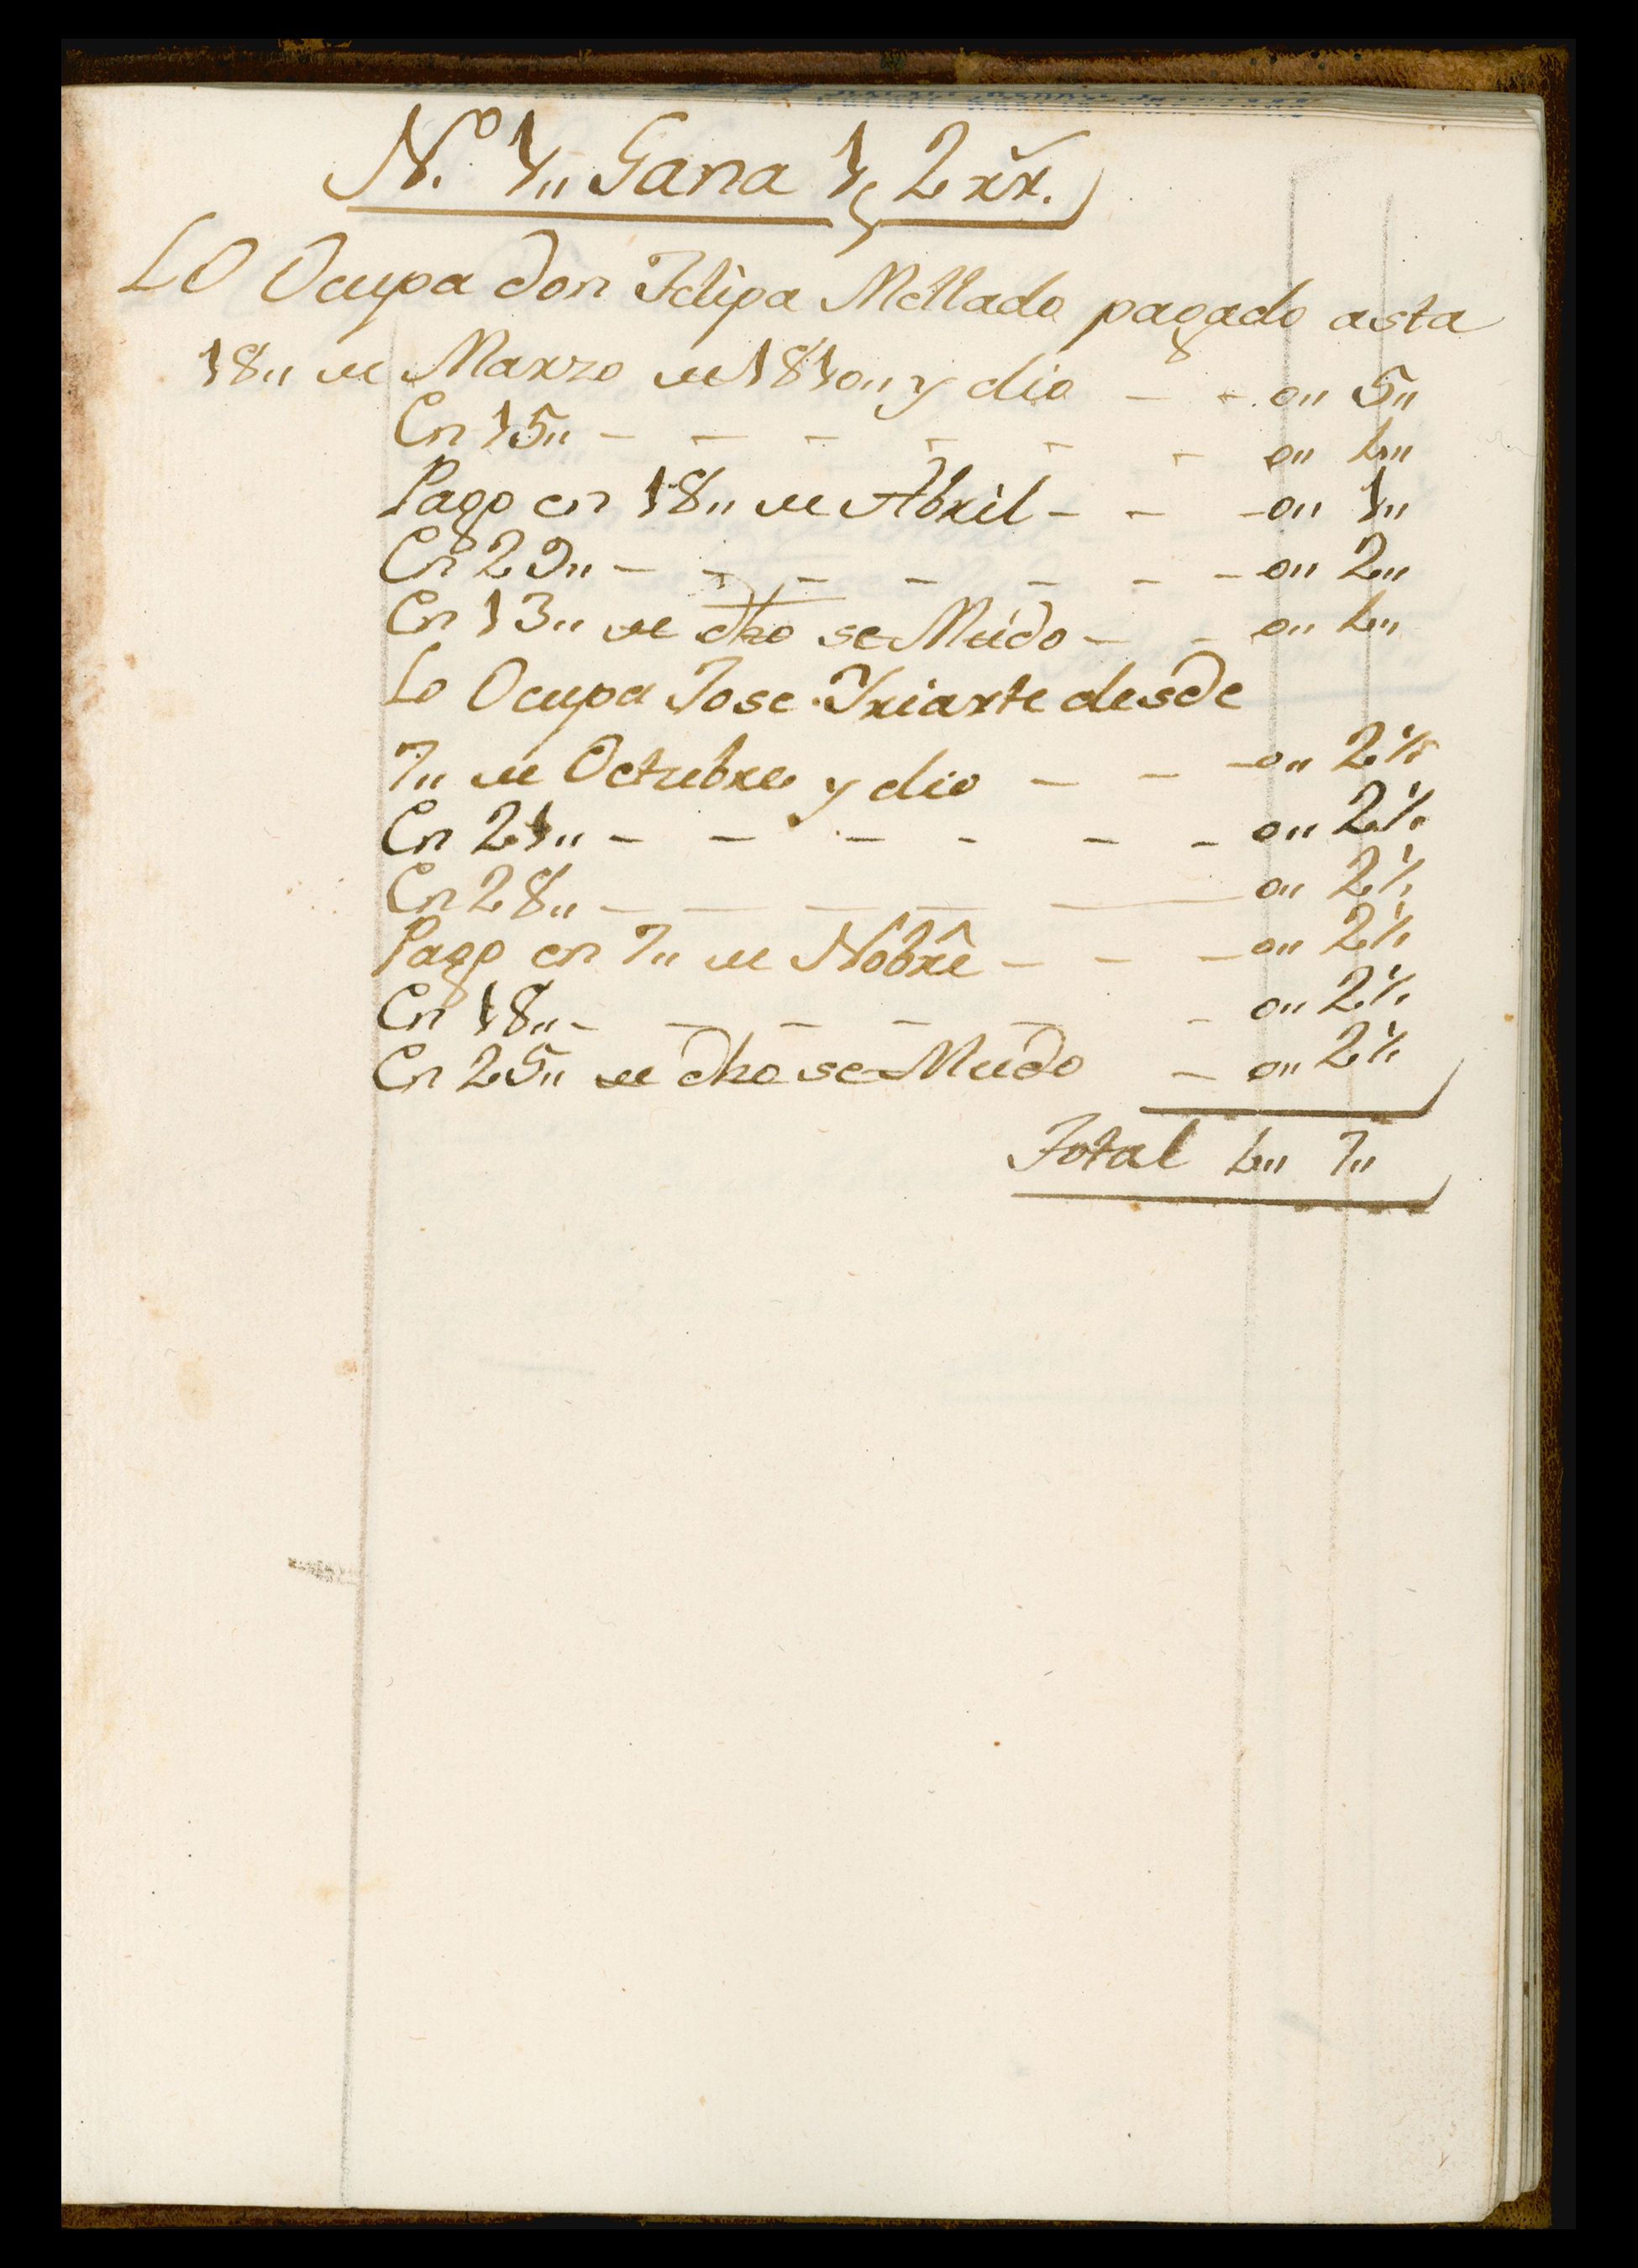 N.º 1,, Gana 1, 2 rr.
LO Ocupa don Felipa Mellado pagado asta
18,, de Marzo de 1810,, y dio - - 0,, 5,,
En 15,, - - - - - - 0,, 4,,
Pago en 18,, de Abril - - - 0,, 1,,
En 29,, - - - - - - - 0,, 2,,
En 13,, de dho se Mudo - - 0,, 4,,
Lo Ocupa Jose Yriarte desde
7,, de Octubre y dio - - - 0,, 2½
En 21,, - - - - - - 0,, 2½
En 28,, - - - - - 0,, 2½
Pago en 7,, de Nobre - - - 0,, 2½
En 18,, - - - - - - 0,, 2½
En 25,, de dho se Mudo - 0,, 2½
Total 4,, 7,,